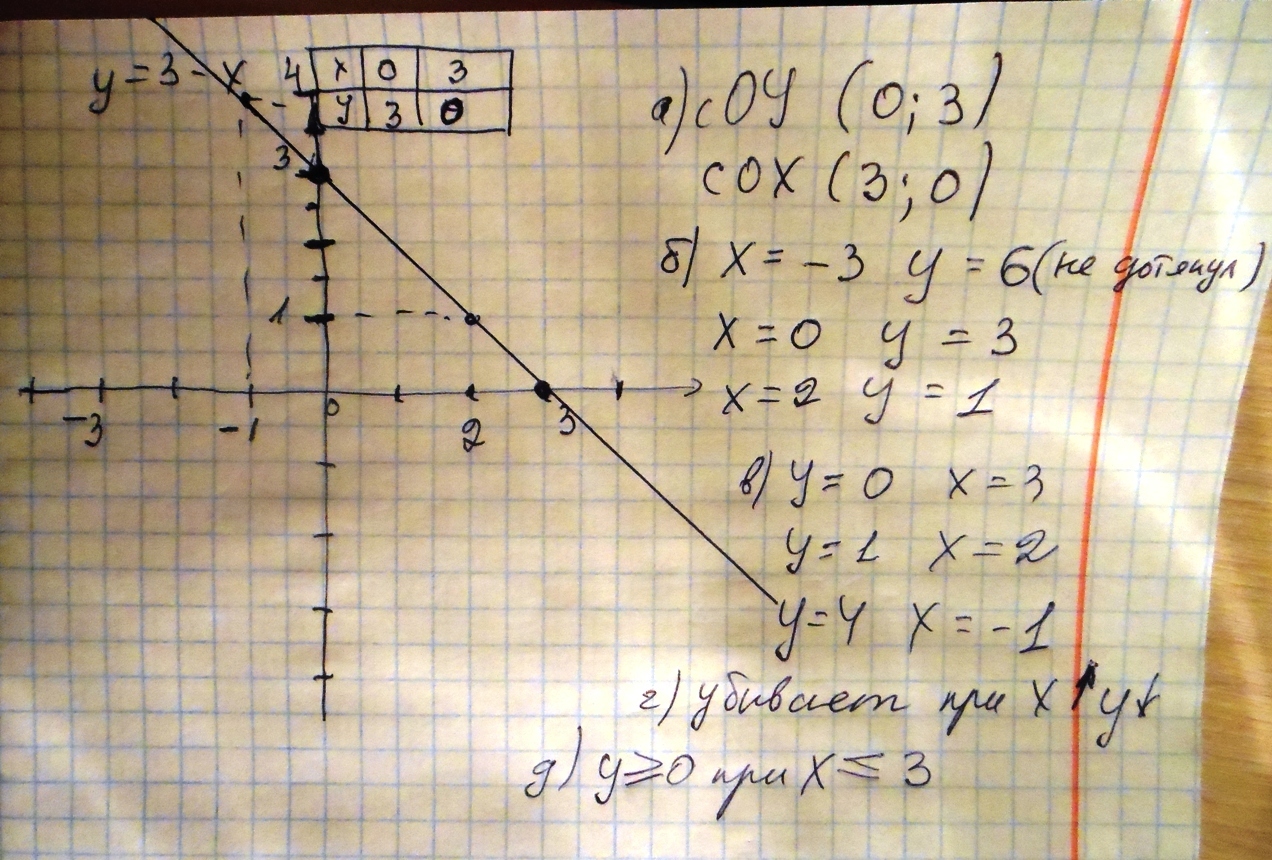 y = 3 - x
x 0 3
y 3 0
4
3
1
-3 -1 0 2 3
а) с OY (0; 3)
с OX (3; 0)
б) x = -3 y = 6 (не дотянул)
x = 0 y = 3
x = 2 y = 1
в) y = 0 x = 3
y = 1 x = 2
y = 4 x = -1
г) убывает при x ↑ y↓
д) y ⩾ 0 при x ≤ 3